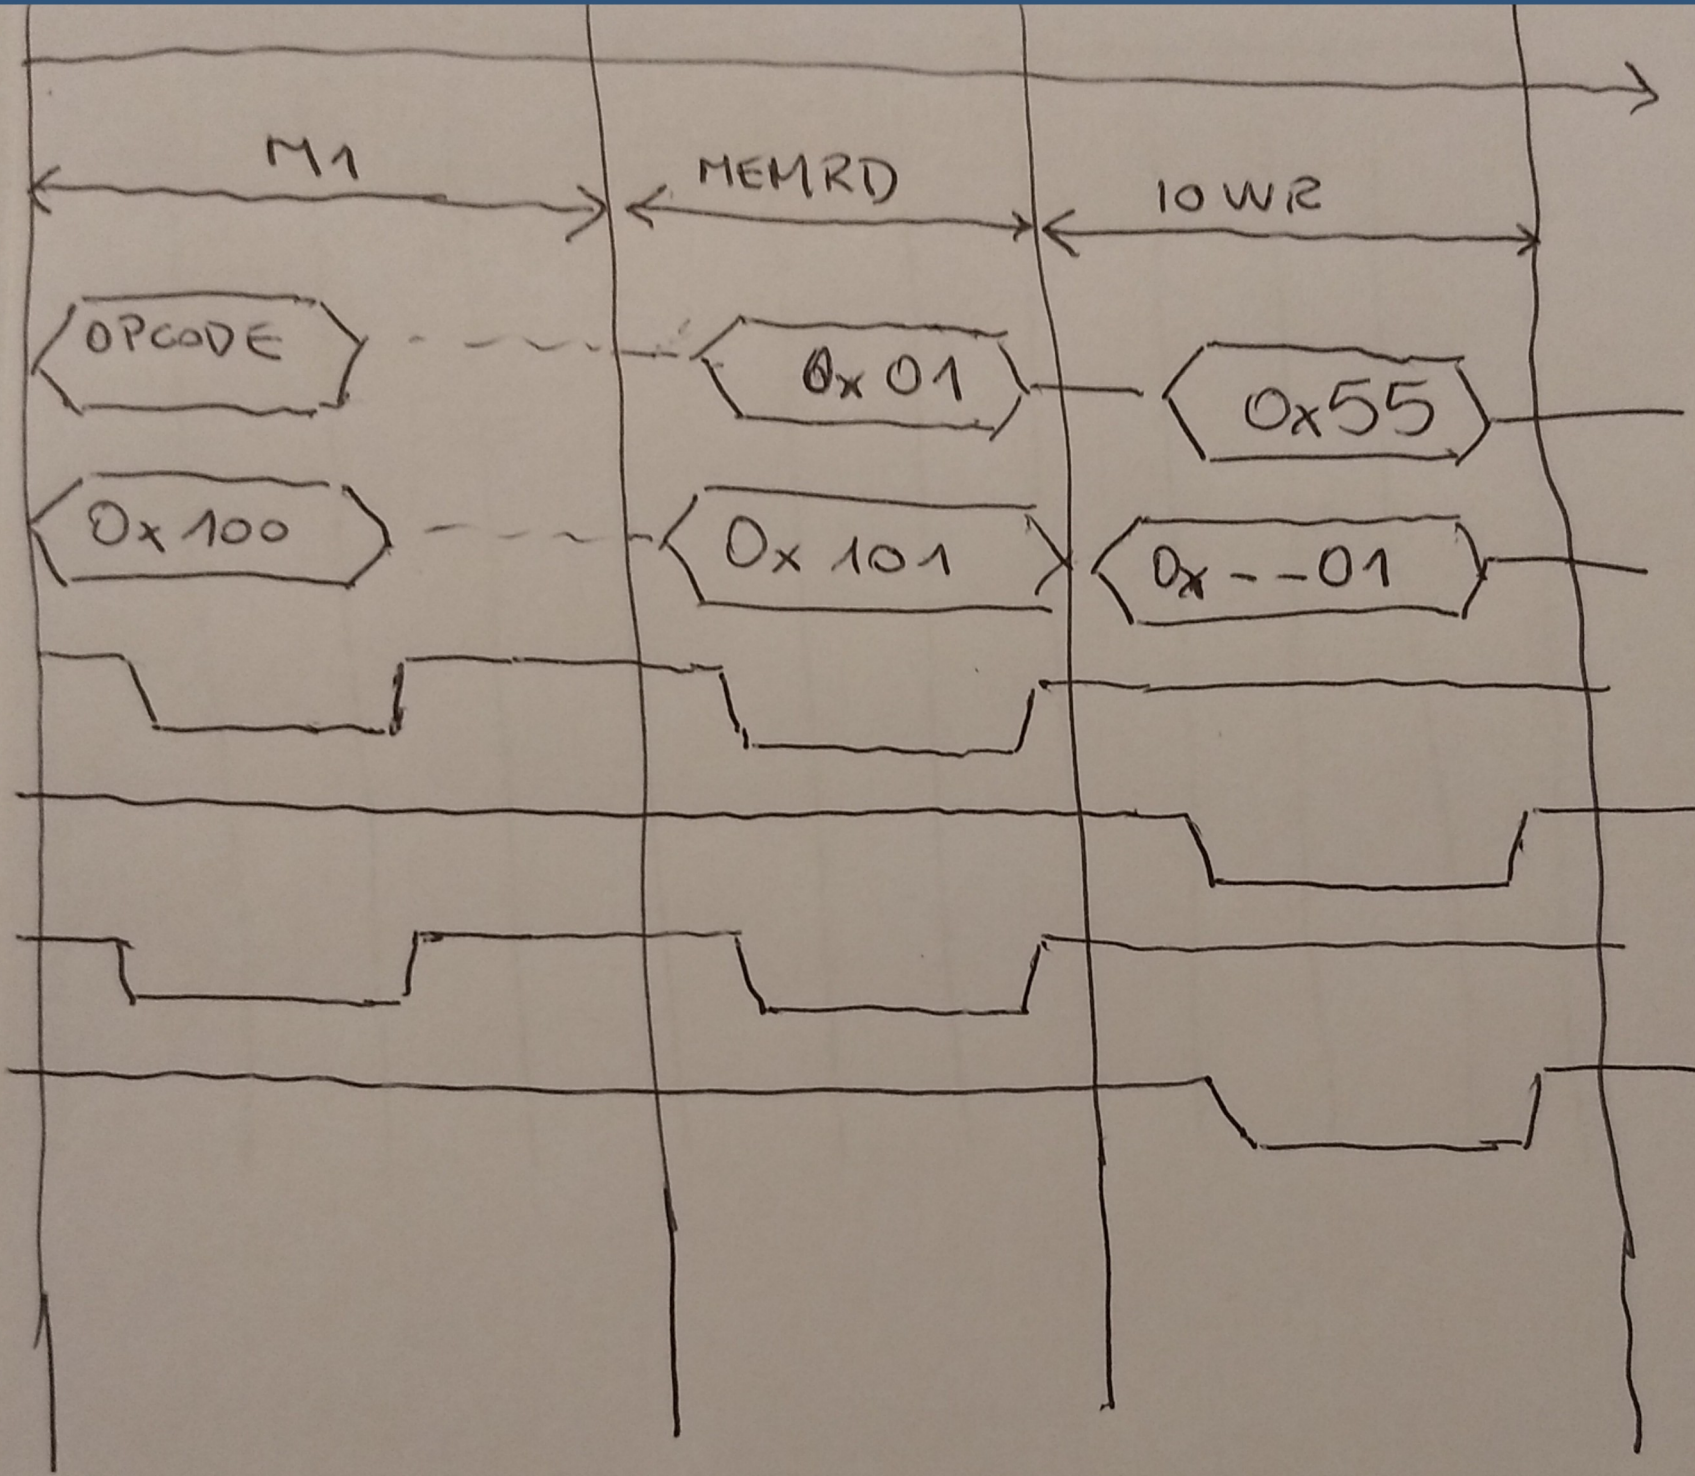 M1 MEMRD IOWR
OPCODE 0x01 0x55
0x100 0x101 0x--01